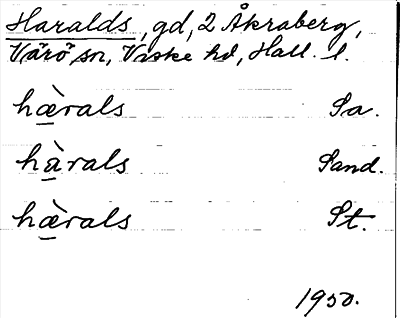 Haralds, gd, 2 Åkraberg,
Värö sn, Viske hd, Hall. l.
hæ̲̀rals Sa.
hà̲rals Sand.
hæ̲̀rals St.
1950.